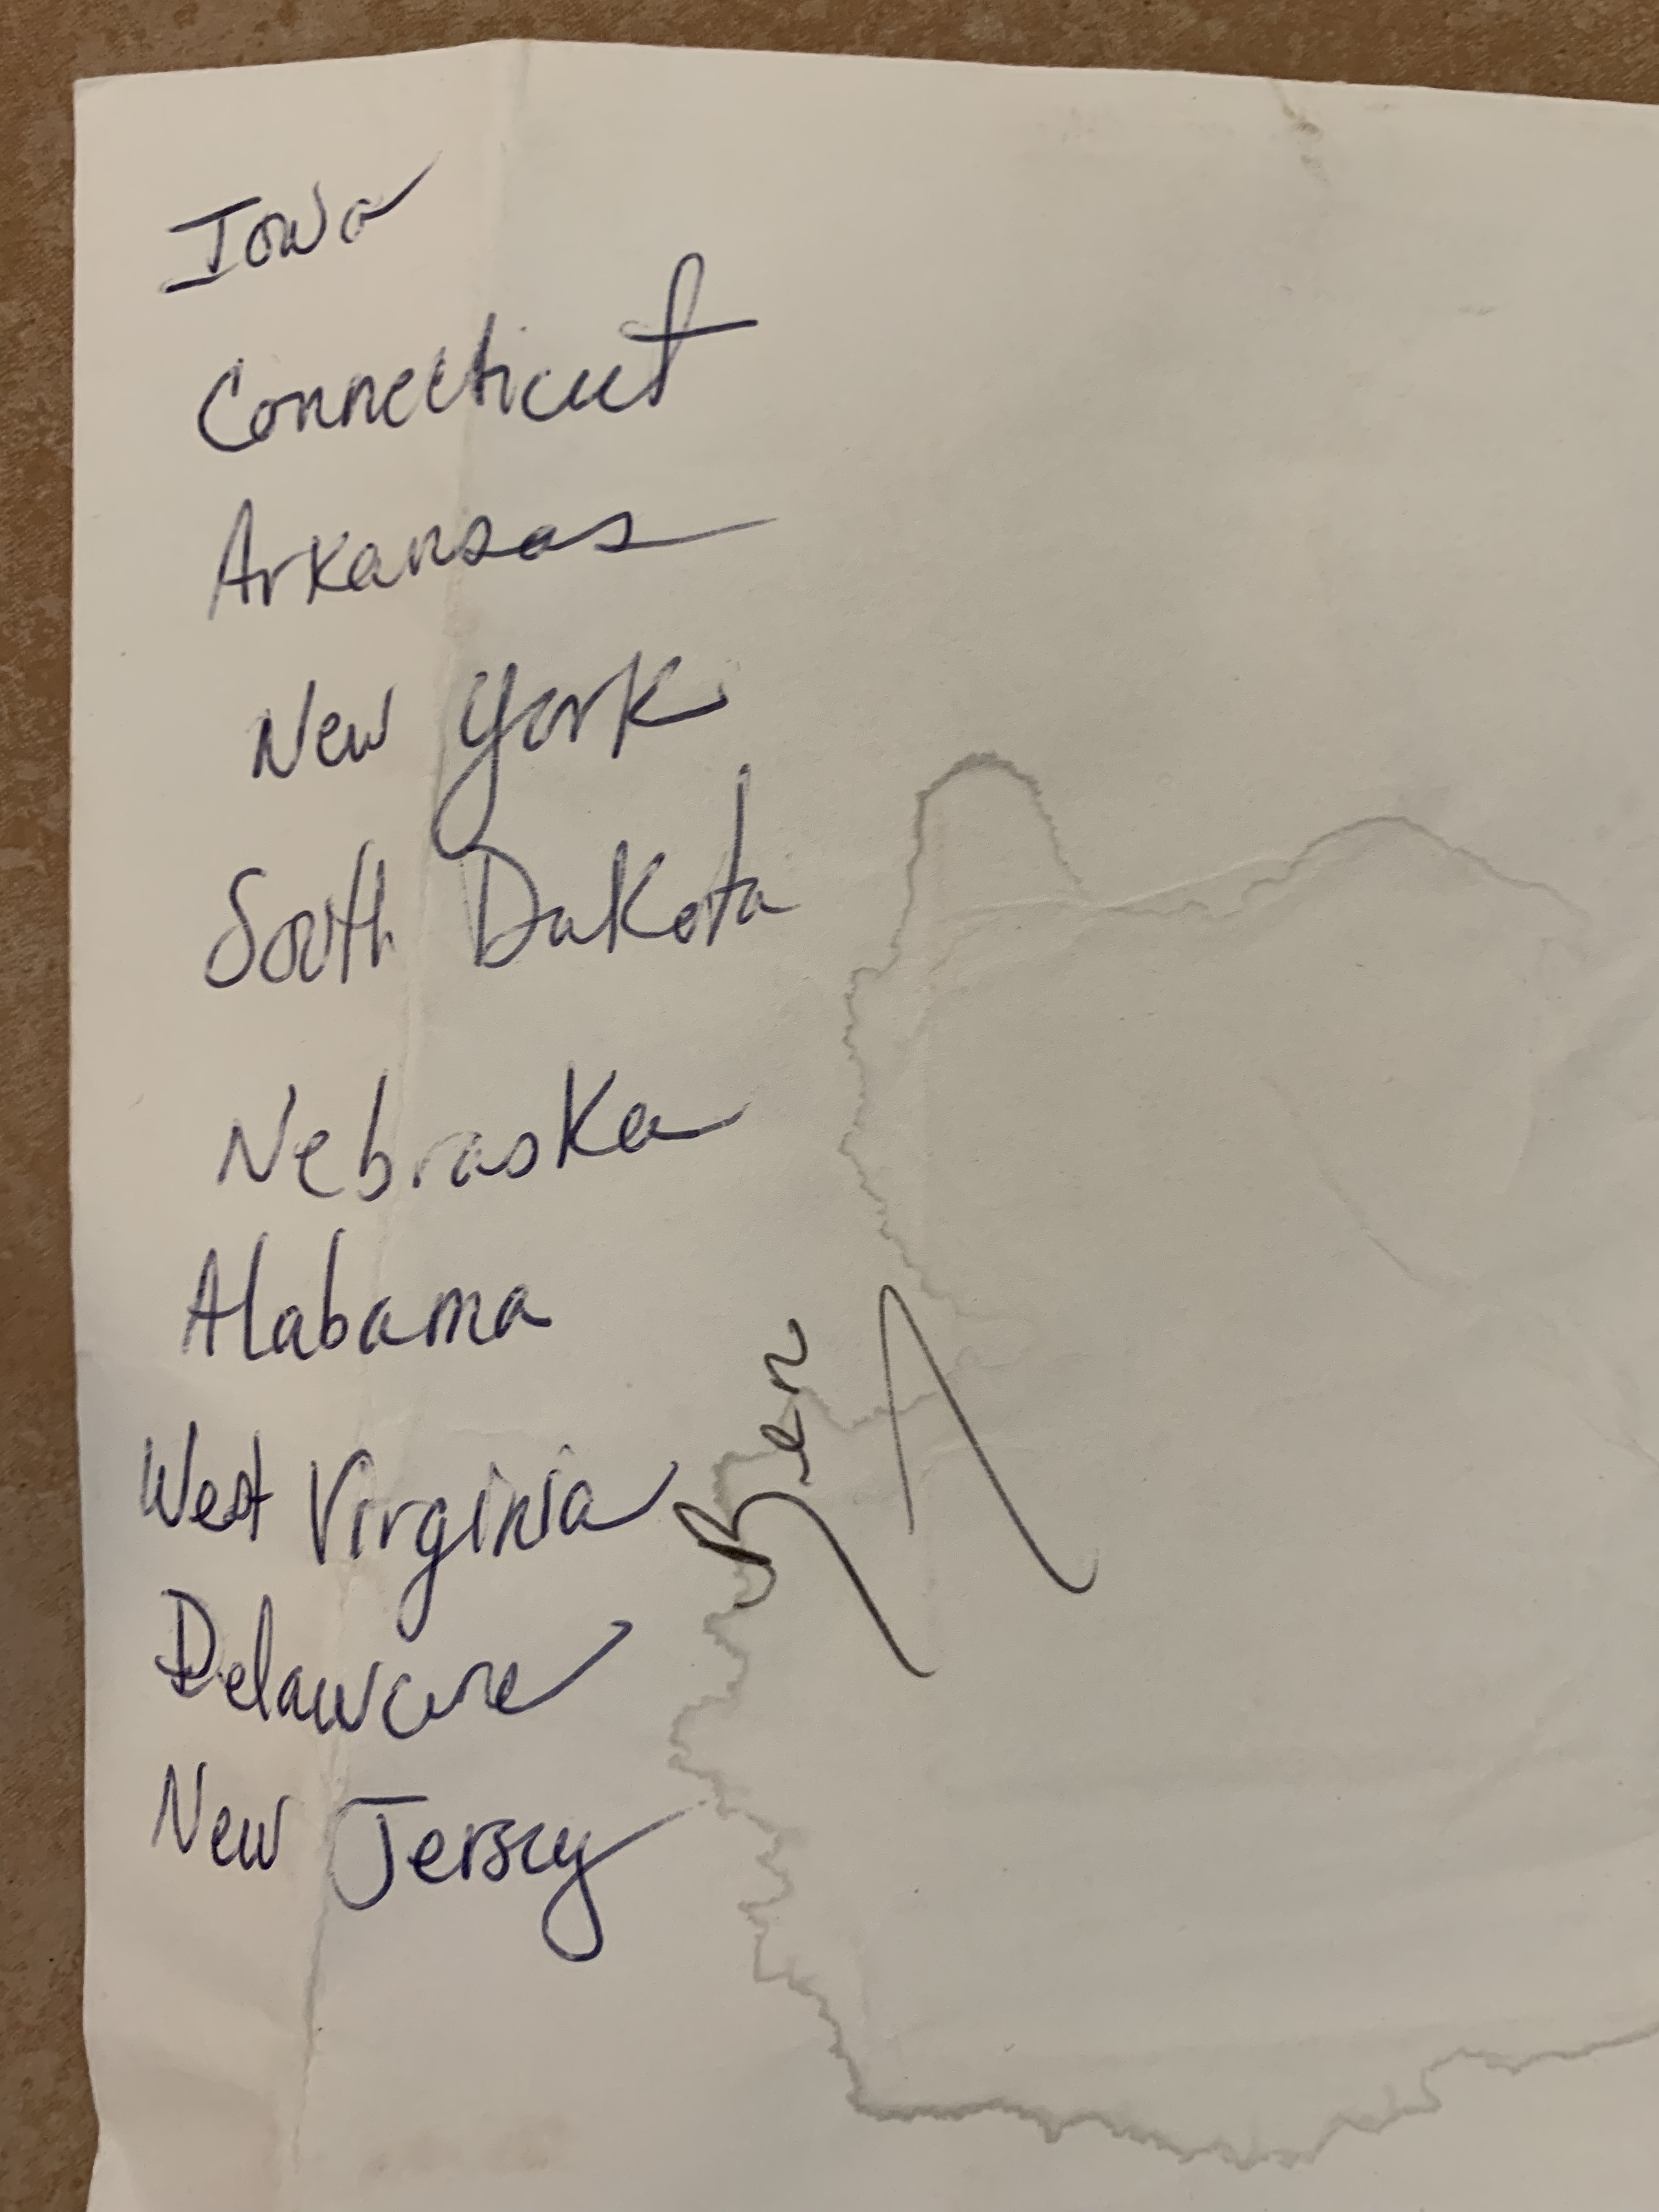 Iowa
Connecticut
Arkansas
New York
South Dakota
Nebraska
Alabama
West Virginia
Delaware
New Jersey
Ben A